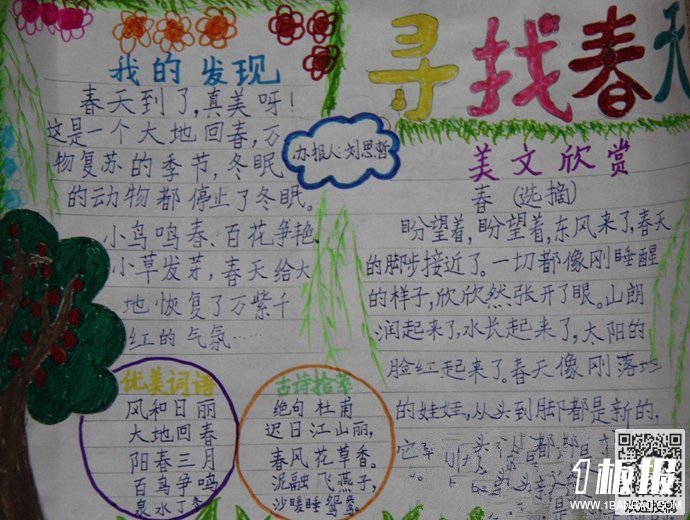 寻找春天
我的发现
春天到了,真美呀!
这是一个大地回春,万
物复苏的季节,冬眠
的动物都停止了冬眠。
小鸟鸣春、百花争艳
小草发芽,春天给大
地恢复了万紫千
红的气氛……
办报人:刘思哲
美文欣赏
春(选摘)
盼望着,盼望着,东风来了,春天
的脚步接近了。一切都像刚睡醒
的样子,欣欣然张开了眼。山朗
润起来了,水长起来了,太阳的
脸红起来了。春天像刚落地
的娃娃,从头到脚都是新的,
它
优美词语
风和日丽
大地回春
阳春三月
百鸟争鸣
泉水丁冬
古诗指荐
绝句 杜甫
迟日江山丽,
春风花草香。
泥融飞燕子,
沙暖睡鸳鸯。
板报
WWW.1BANBAO.COM